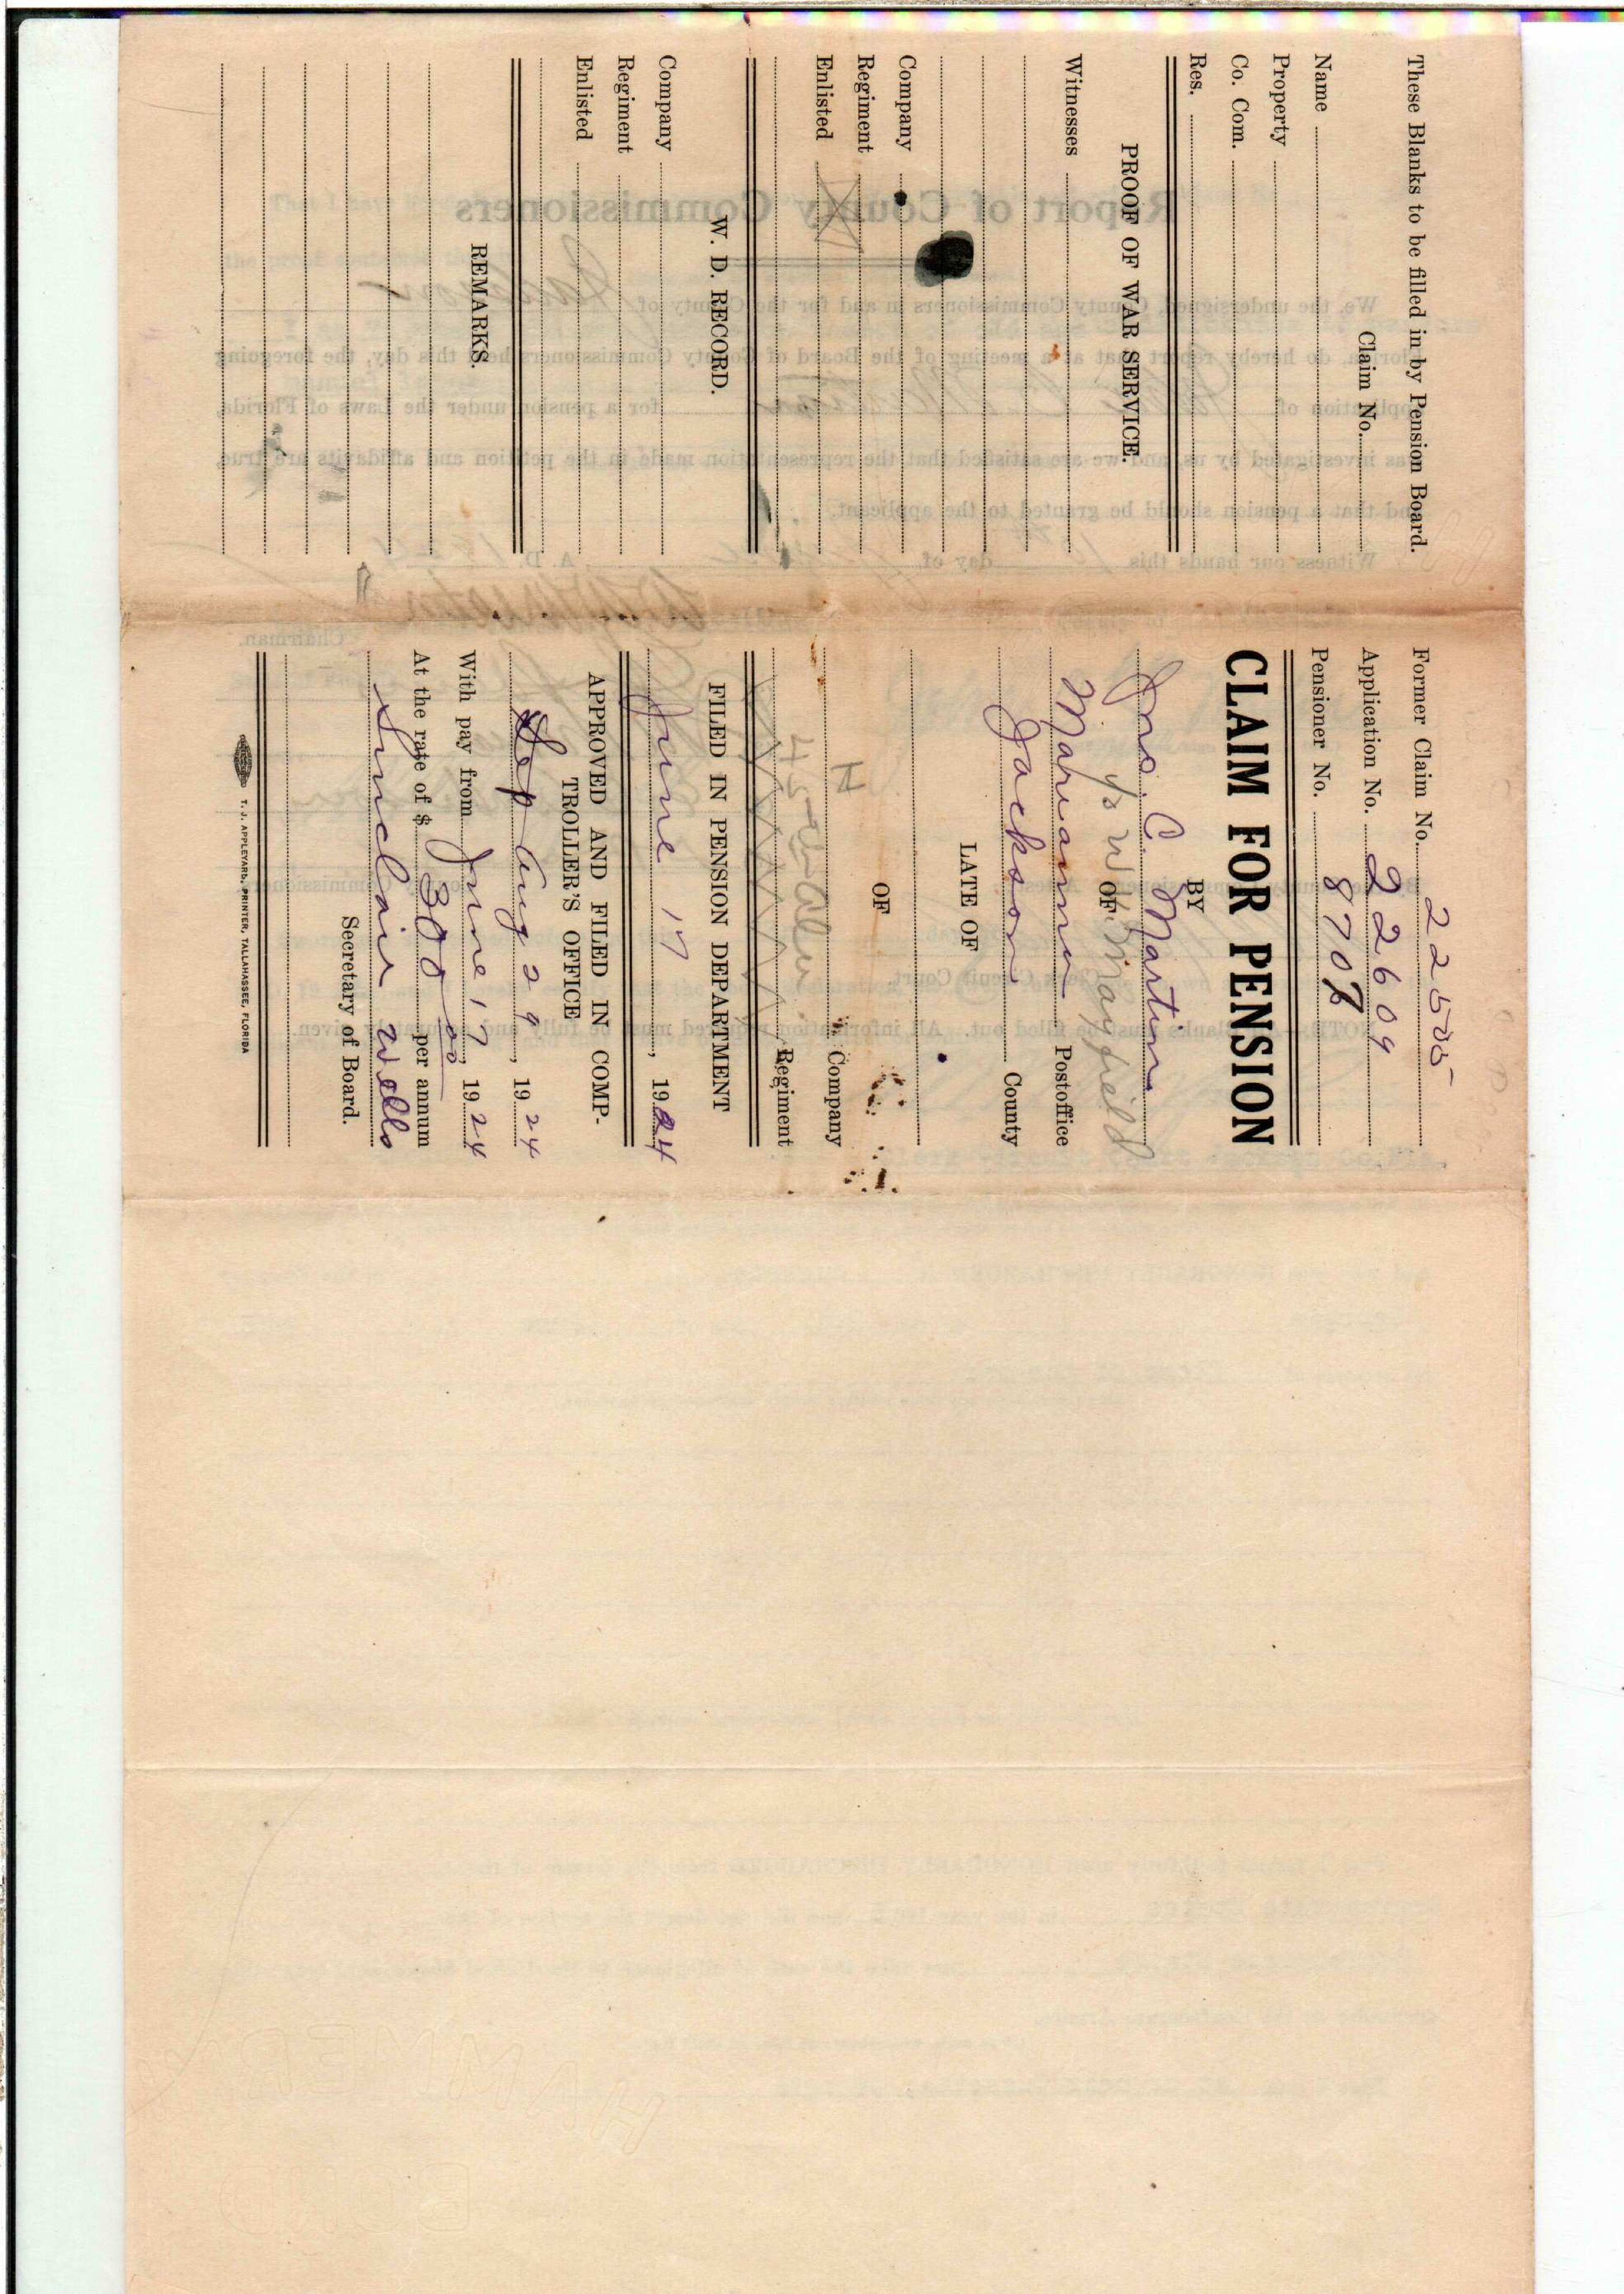 These Blanks to be filled in by Pension Board.
Claim No.
Name
Property
Co. Com.
Res.
PROOF OF WAR SERVICE.
Witnesses
Company
Regiment
Enlisted
W. D. RECORD.
Company
Regiment
Enlisted
REMARKS.
Former Claim No. 22505
Application No. 22609
Pensioner No. 8708
CLAIM FOR PENSION
BY
Jno. C. Martin
OF
c/o W. Mayfield
Marianna Postoffice
Jackson County
LATE OF
OF
H Company
Regiment
FILED IN PENSION DEPARTMENT
June 17, 1924
APPROVED AND FILED IN COMP-
TROLLER'S OFFICE
Aug 29, 1924
With pay from June 17, 1924
At the rate of $ 300 00 per annum
Sinclair Wells
Secretary of Board.
T. J. APPLEYARD, PRINTER, TALLAHASSEE, FLORIDA